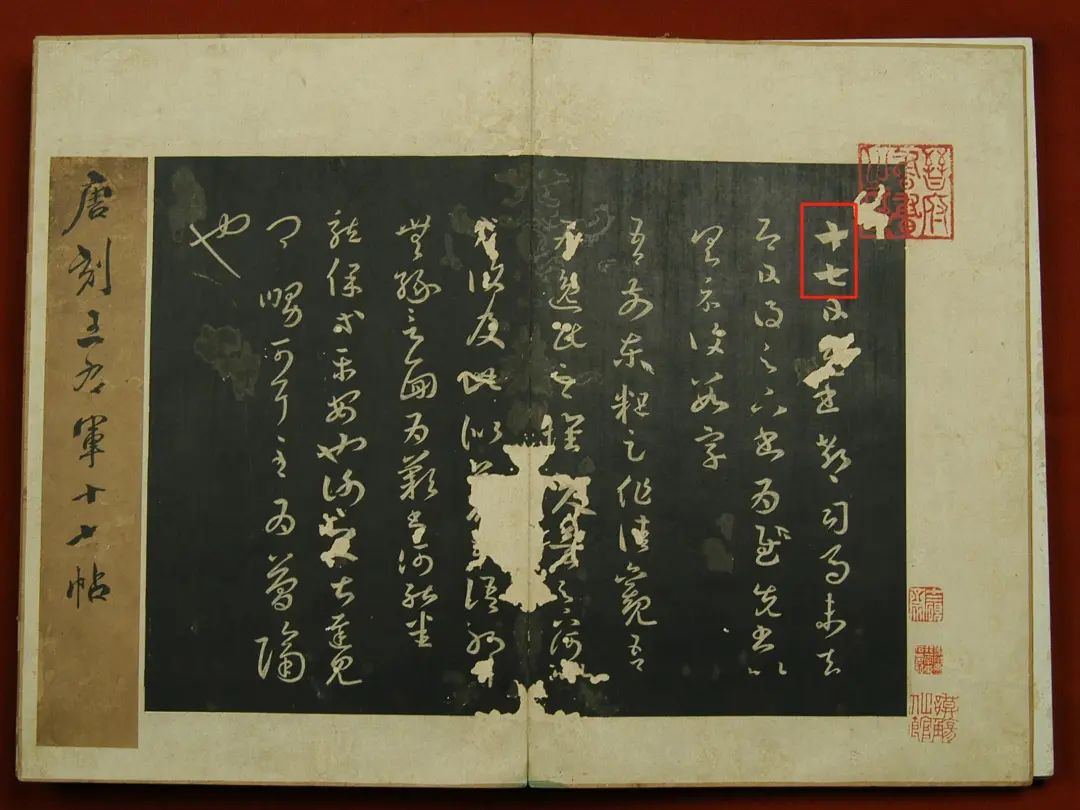 十七日先書郗司馬未去
即日得足下書為慰先書以
具示復數字
吾前東粗足作佳觀吾
為逸民之懷久矣足下何以
方復及此似夢中語耶
無緣言面為歎書何能悉
龍保等平安也謝之甚遲見
卿舅可耳至為簡隔
也
唐刻王右軍十七帖